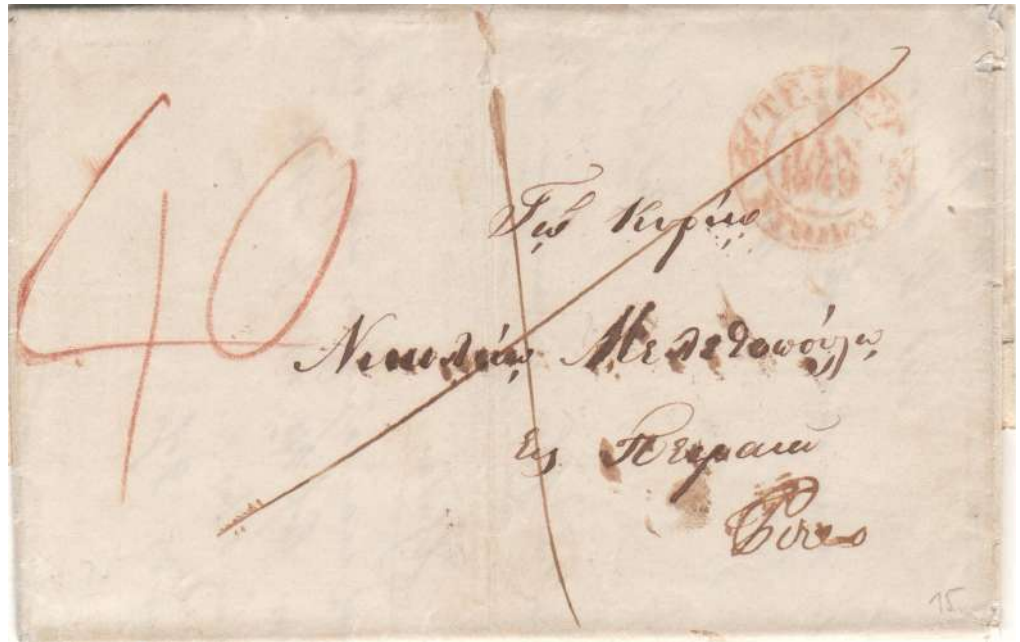 40
Τῷ Κυρίῳ
Νικολάῳ Μελετοπούλῳ
Εἰς Πειραιᾶ
Pireo
15